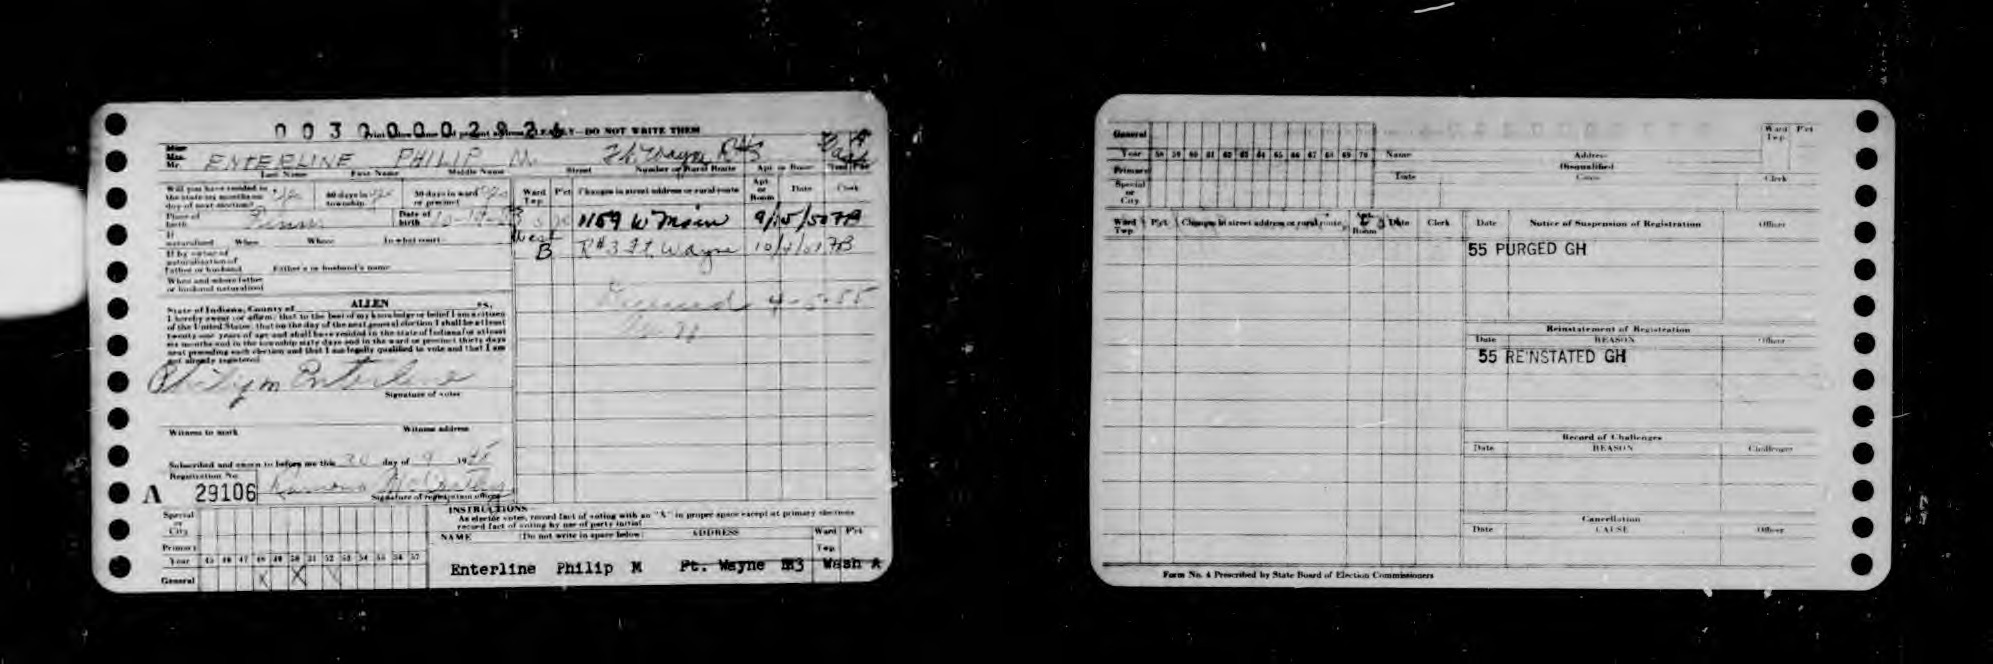 0030000292
Print DO NOT WRITE THEM
Miss Mrs. Mr. ENTERLINE PHILIP M. Ft. Wayne R#3
Last Name First Name Middle Name Street Number or Rural Route Apt or Room
Will you have resided in the state six months on day of next election? yes 60 days in township yes 30 days in ward or precinct yes
Ward Twp. P'ct Changes in street address or rural route Apt. or Room Date Clerk
Place of birth Penn Date of birth
1159 W Main 9/15/50 7B
If naturalized When Where In what court
West B R#3 Ft. Wayne 10/4/51 7B
If by virtue of naturalization of Father or husband Father's or husband's name
When and where father or husband naturalized
Deceased 4-5-55
ALLEN
State of Indiana, County of ss.
I hereby swear (or affirm) that to the best of my knowledge or belief I am a citizen
of the United States; that on the day of the next general election I shall be at least
twenty-one years of age and shall have resided in the state of Indiana for at least
six months and in the township sixty days and in the ward or precinct thirty days
next preceding such election and that I am legally qualified to vote and that I am
not already registered.
Philip M Enterline
Signature of voter
Witness to mark Witness address
Subscribed and sworn to before me this 20 day of 9 19
Registration No.
A 29106
Signature of registration officer
Special or City
Primary
Year 45 46 47 48 49 50 51 52 53 54 55 56 57
General X X
INSTRUCTIONS
As elector votes, record fact of voting with an "X" in proper space except at primary elections
record fact of voting by use of party initial
NAME (Do not write in space below) ADDRESS Ward Twp. P'ct
Enterline Philip M Ft. Wayne RR3 Wash A
General
Year 58 59 60 61 62 63 64 65 66 67 68 69 70
Primary
Special or City
Name Address Ward Twp. P'ct
Disqualified
Date Cause Clerk
Ward Twp. P'ct Changes in street address or rural route Apt. or Room Date Clerk
Date Notice of Suspension of Registration Officer
55 PURGED GH
Reinstatement of Registration
Date REASON Officer
55 REINSTATED GH
Record of Challenges
Date REASON Challenger
Cancellation
Date CAUSE Officer
Form No. 4 Prescribed by State Board of Election Commissioners